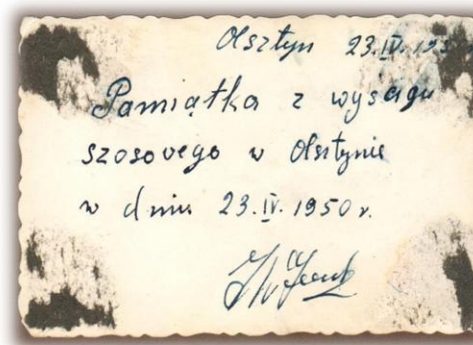 Olsztyn 23.IV.195
Pamiątka z wyścigu
szosowego w Olsztynie
w dniu 23.IV.1950 r.